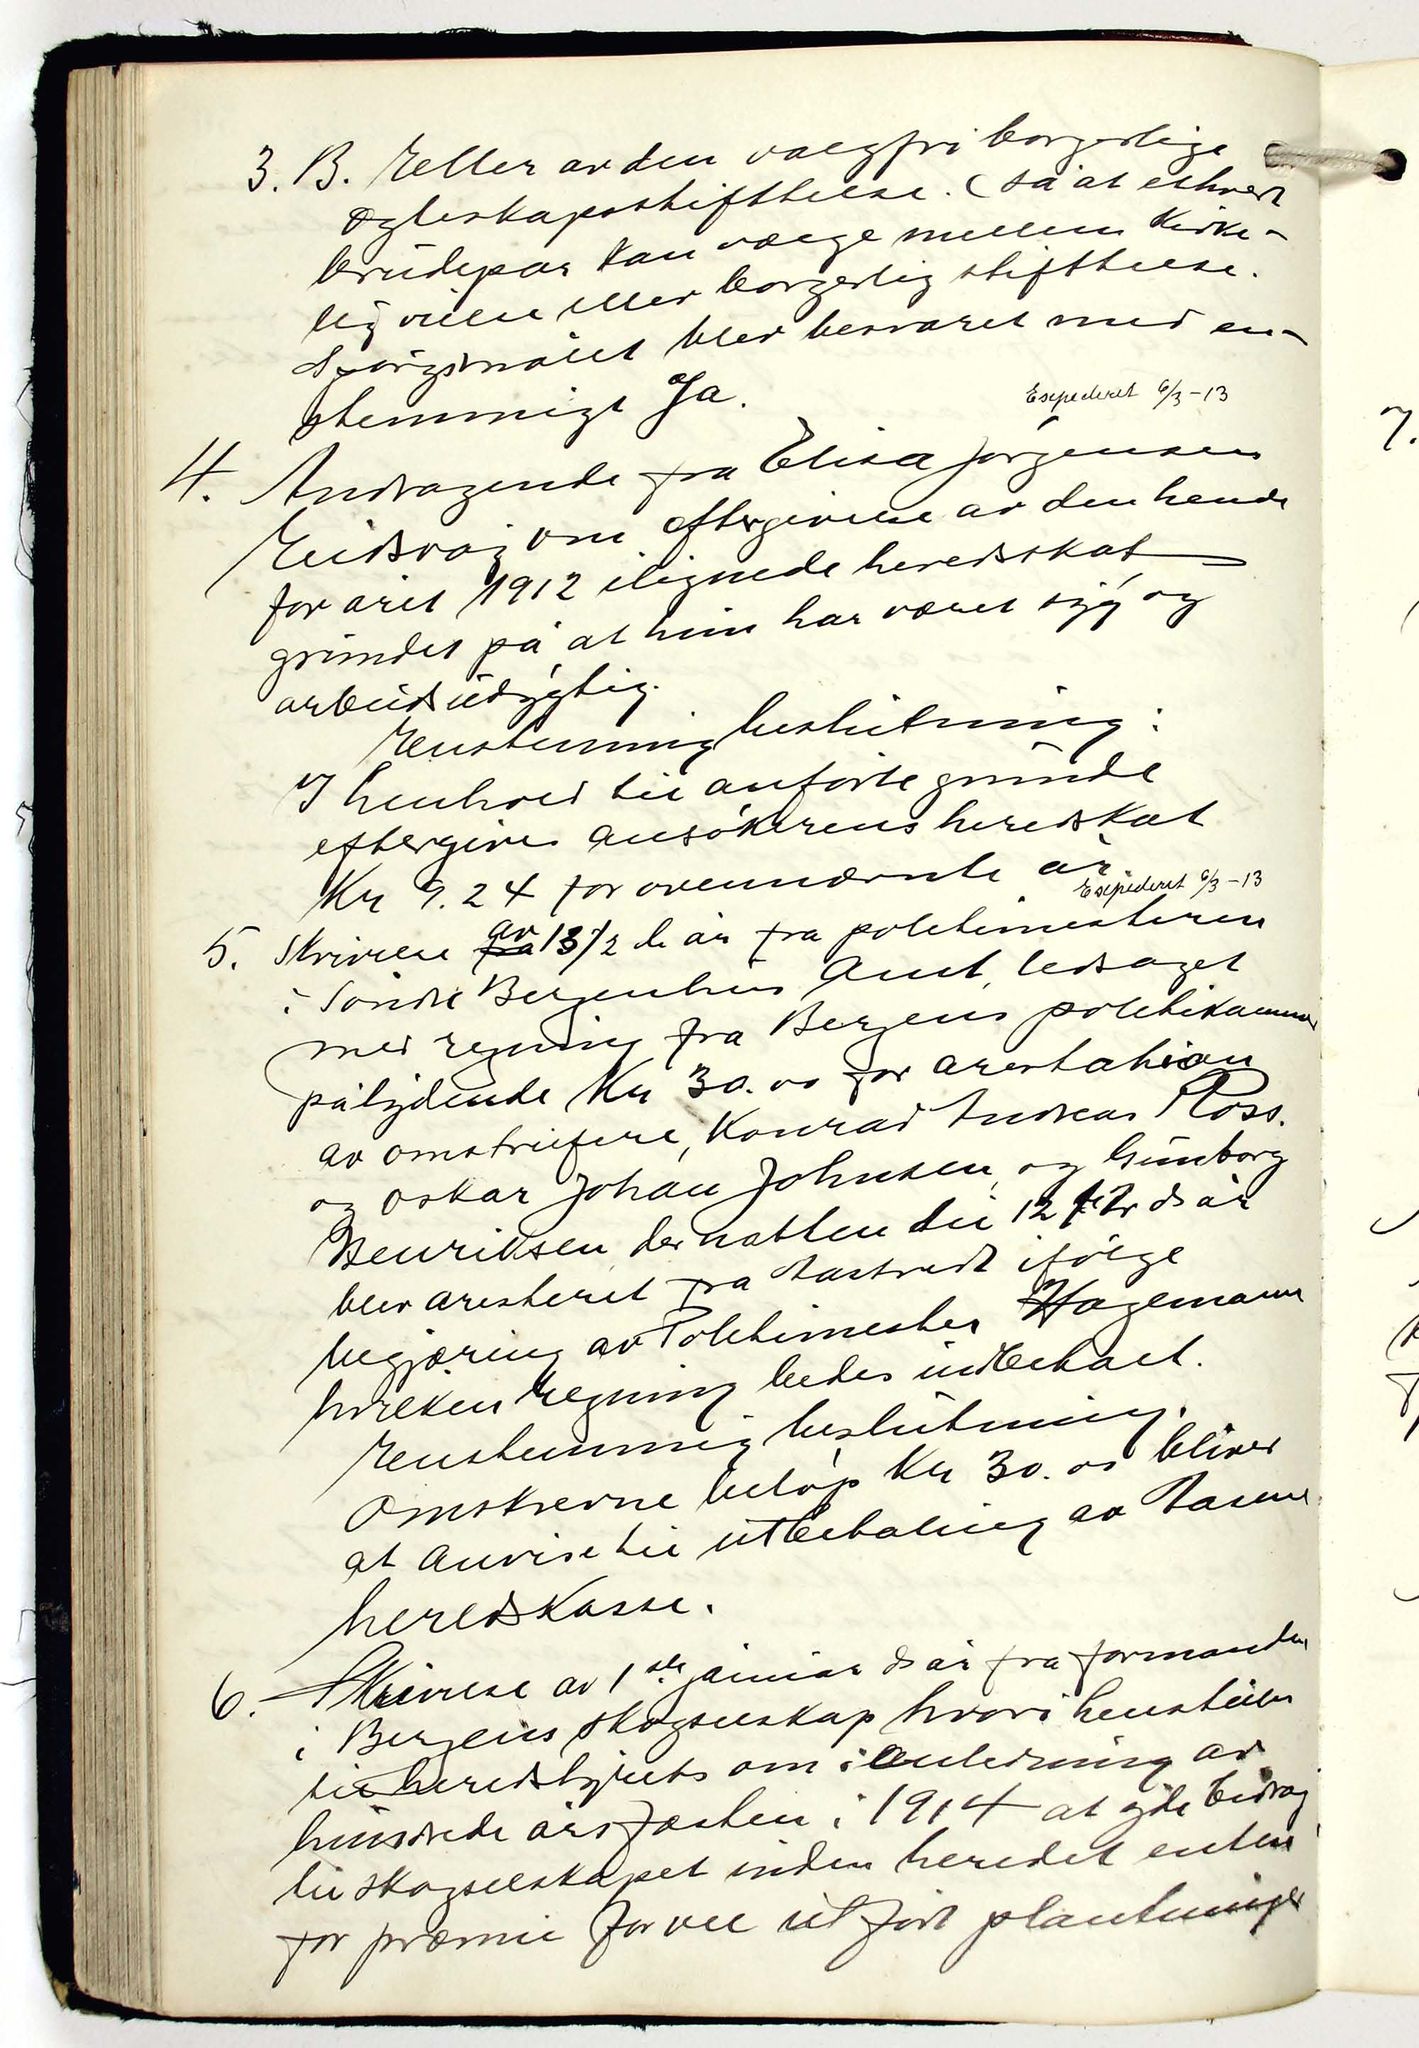 3. B. Eller av den valgfri borgerlige
egteskapsstifttelse. (så at ethvert
brudepar kan vælge mellem kirke-
lig vielse eller borgerlig stifttelse.
Spörgsmålet blev besvaret med en-
stemmigt Ja.
Expederet 6/3-13
4. Andragende fra Elisa Jörgensen
Eidsvåg om eftergivelse av den hende
for året 1912 ilignede heredsskat
grundet på at hun har været syg og
arbeidsudygtig.
Enstemmig beslutning:
I henhold til anförte grunde
eftergives ansökerens heredskat
Kr 9.24 for ovennævnte år.
Expederet 6/3-13
5. Skrivelse av 13/2 d. år fra politimesteren
i Söndre Bergenhus Amt, ledsaget
med regning fra Bergens politikammer
pålydende Kr 30.00 for arestation
av omstreifere, Konrad Andreas Ross.
og Oskar Johan Johnsen, og Gunborg
Henriksen, der natten til 12 ds år
blev aresteret fra Aastvedt ifölge
begjæring av Politimester Hagemann
hvilken regning bedes indbetalt.
Enstemmig beslutning.
Omskrevne belöp Kr 30.00 bliver
at anvise til utbetaling av Aasene
heredskasse.
6. Skrivelse av 1ste januar ds år fra formanden
i Bergens skogselskap hvori henstilles
til heredstyrets om i anledning av
hundrede års festen i 1914 at yde bidrag
til skogselskapet inden heredet enten
for præmie for vel utfört plantninger